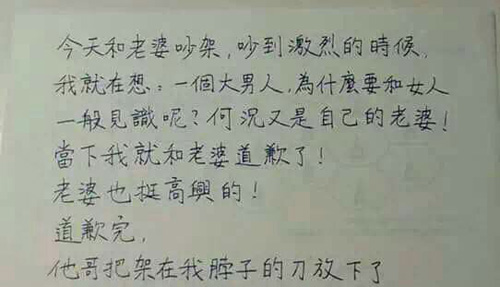 今天和老婆吵架，吵到激烈的時候，
我就在想：一個大男人，為什麼要和女人
一般見識呢？何況又是自己的老婆！
當下我就和老婆道歉了！
老婆也挺高興的！
道歉完，
他哥把架在我脖子的刀放下了